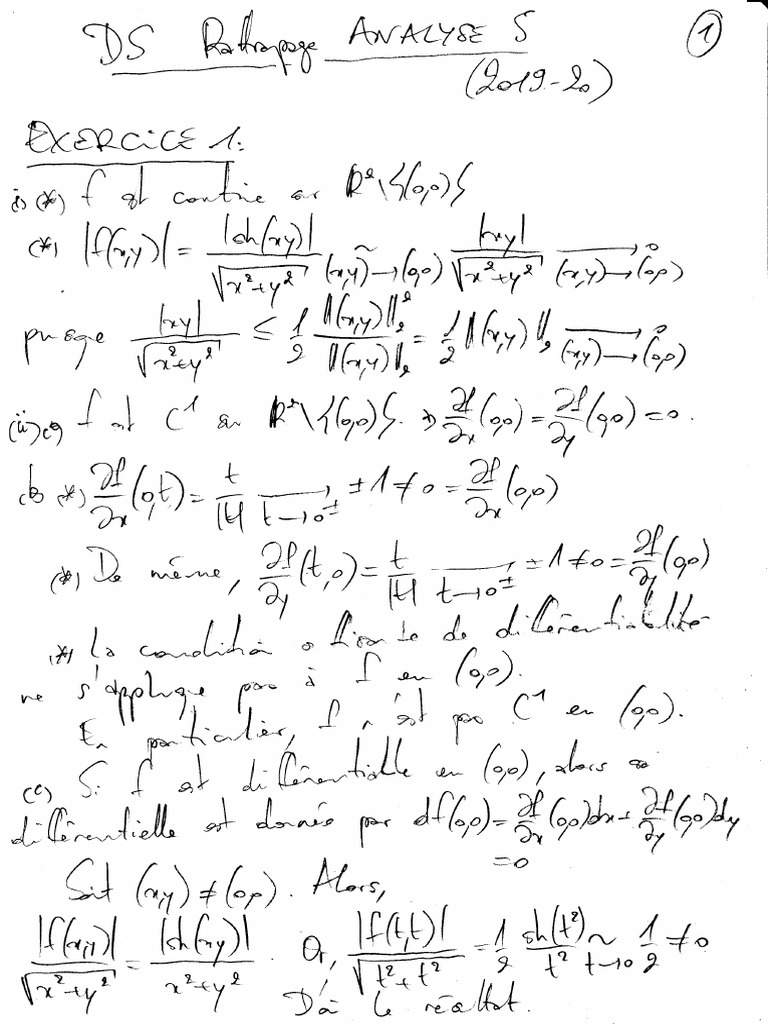 DS Rattrapage ANALYSE 5 ①
(2019-20)
EXERCICE 1:
i) (*) f est continue sur R²\{(0,0)}
(*) |f(x,y)| = |sh(xy)| / √(x²+y²) ~ (x,y)→(0,0) |xy| / √(x²+y²) → 0 (x,y)→(0,0)
puisque |xy| / √(x²+y²) ≤ 1/2 ‖(x,y)‖₂² / ‖(x,y)‖₂ = 1/2 ‖(x,y)‖₂ → 0 (x,y)→(0,0)
(ii) (a) f est C¹ sur R²\{(0,0)}. ∂f/∂x (0,0) = ∂f/∂y (0,0) = 0.
(b) (*) ∂f/∂x (0,t) = t/|t| → ±1 ≠ 0 = ∂f/∂x (0,0) t→0±
(*) De même, ∂f/∂y (t,0) = t/|t| → ±1 ≠ 0 = ∂f/∂y (0,0) t→0±
(*) La condition suffisante de différentiabilité
ne s'applique pas à f en (0,0).
En particulier, f n'est pas C¹ en (0,0).
(c) Si f est différentielle en (0,0), alors sa
différentielle est donnée par df(0,0) = ∂f/∂x (0,0)dx + ∂f/∂y (0,0)dy
= 0
Soit (x,y) ≠ (0,0). Alors,
|f(x,y)| / √(x²+y²) = |sh(xy)| / x²+y². Or, |f(t,t)| / √(t²+t²) = 1/2 sh(t²)/t² ~ t→0 1/2 ≠ 0
D'où le résultat.